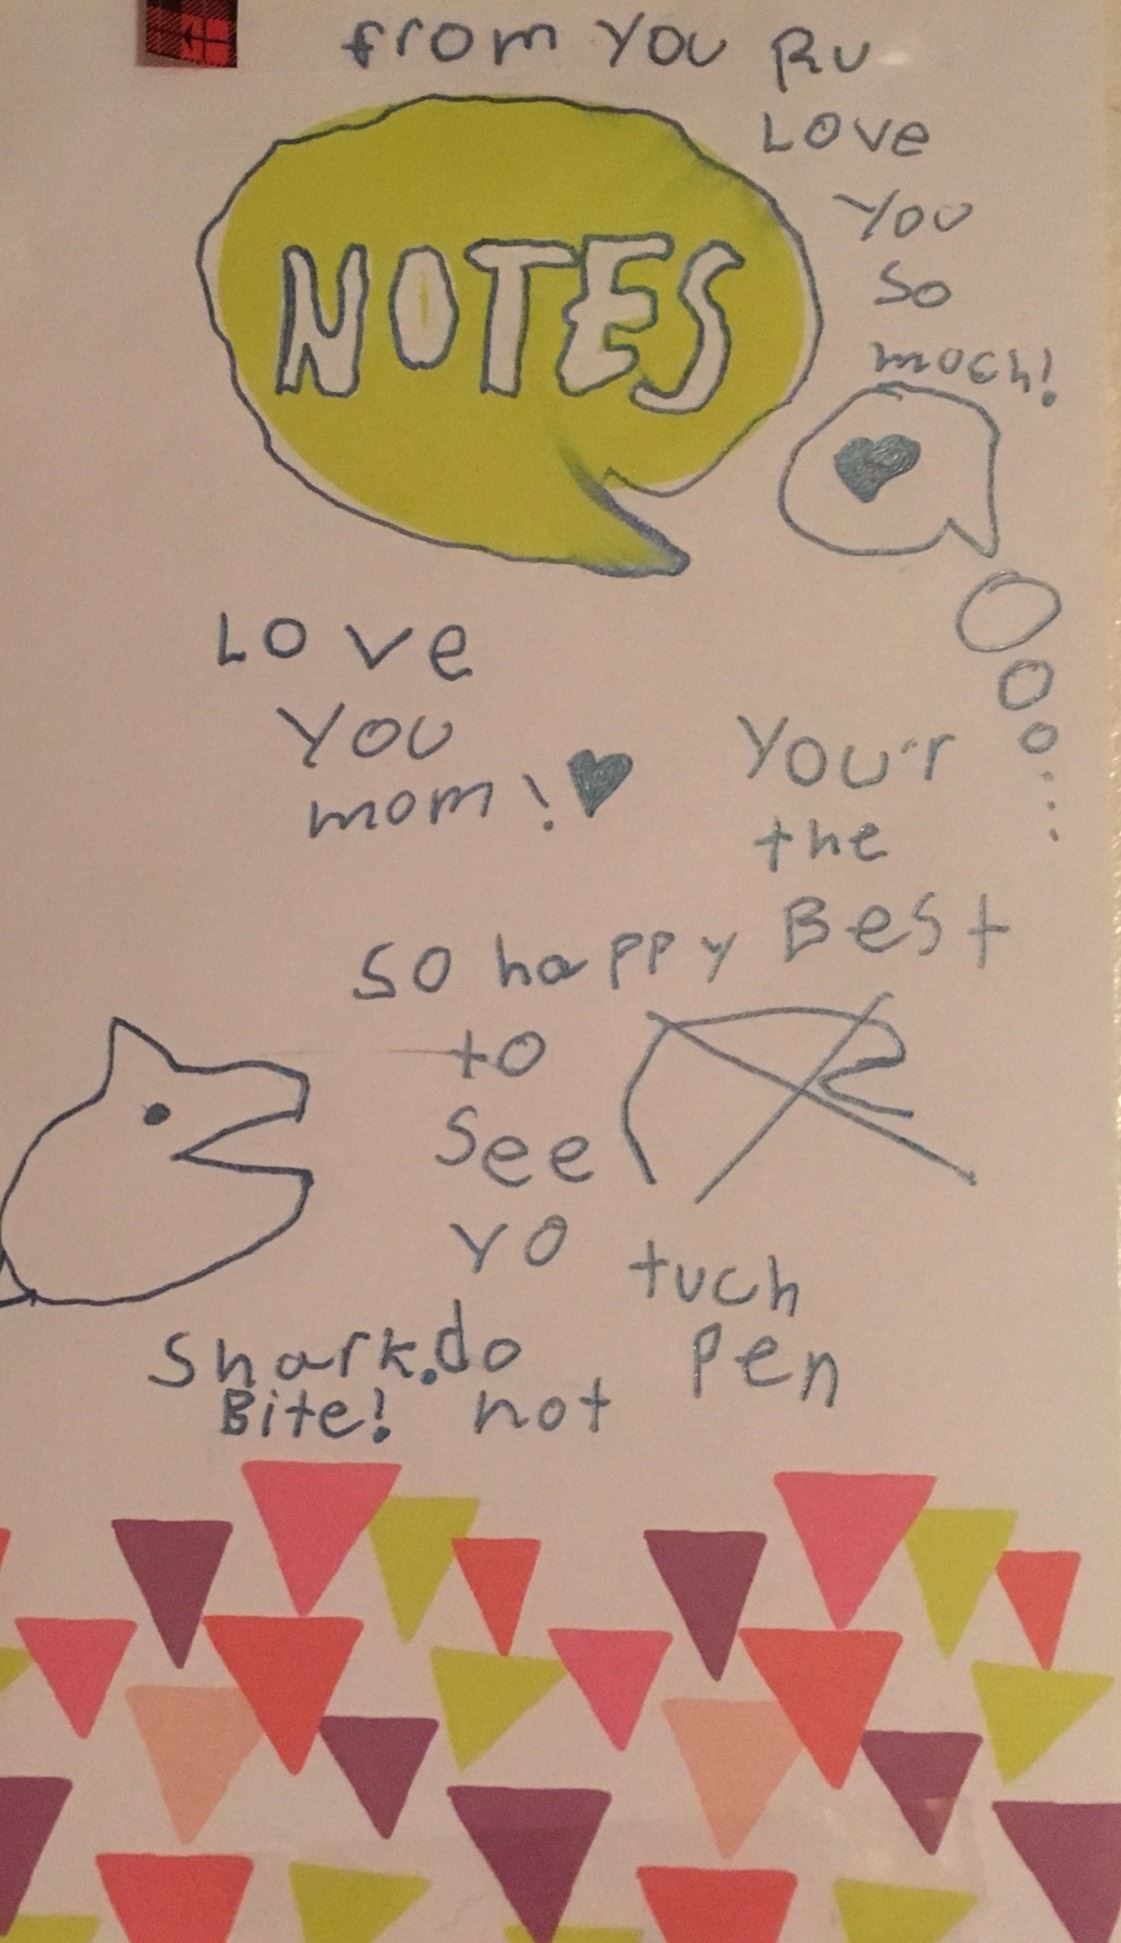 from you Ru
Love
you
so
moch!
NOTES
Love
you
mom!
your'r
the
Best
so happy
to
see
yo
tuch
pen
Shark. do
Bite! not